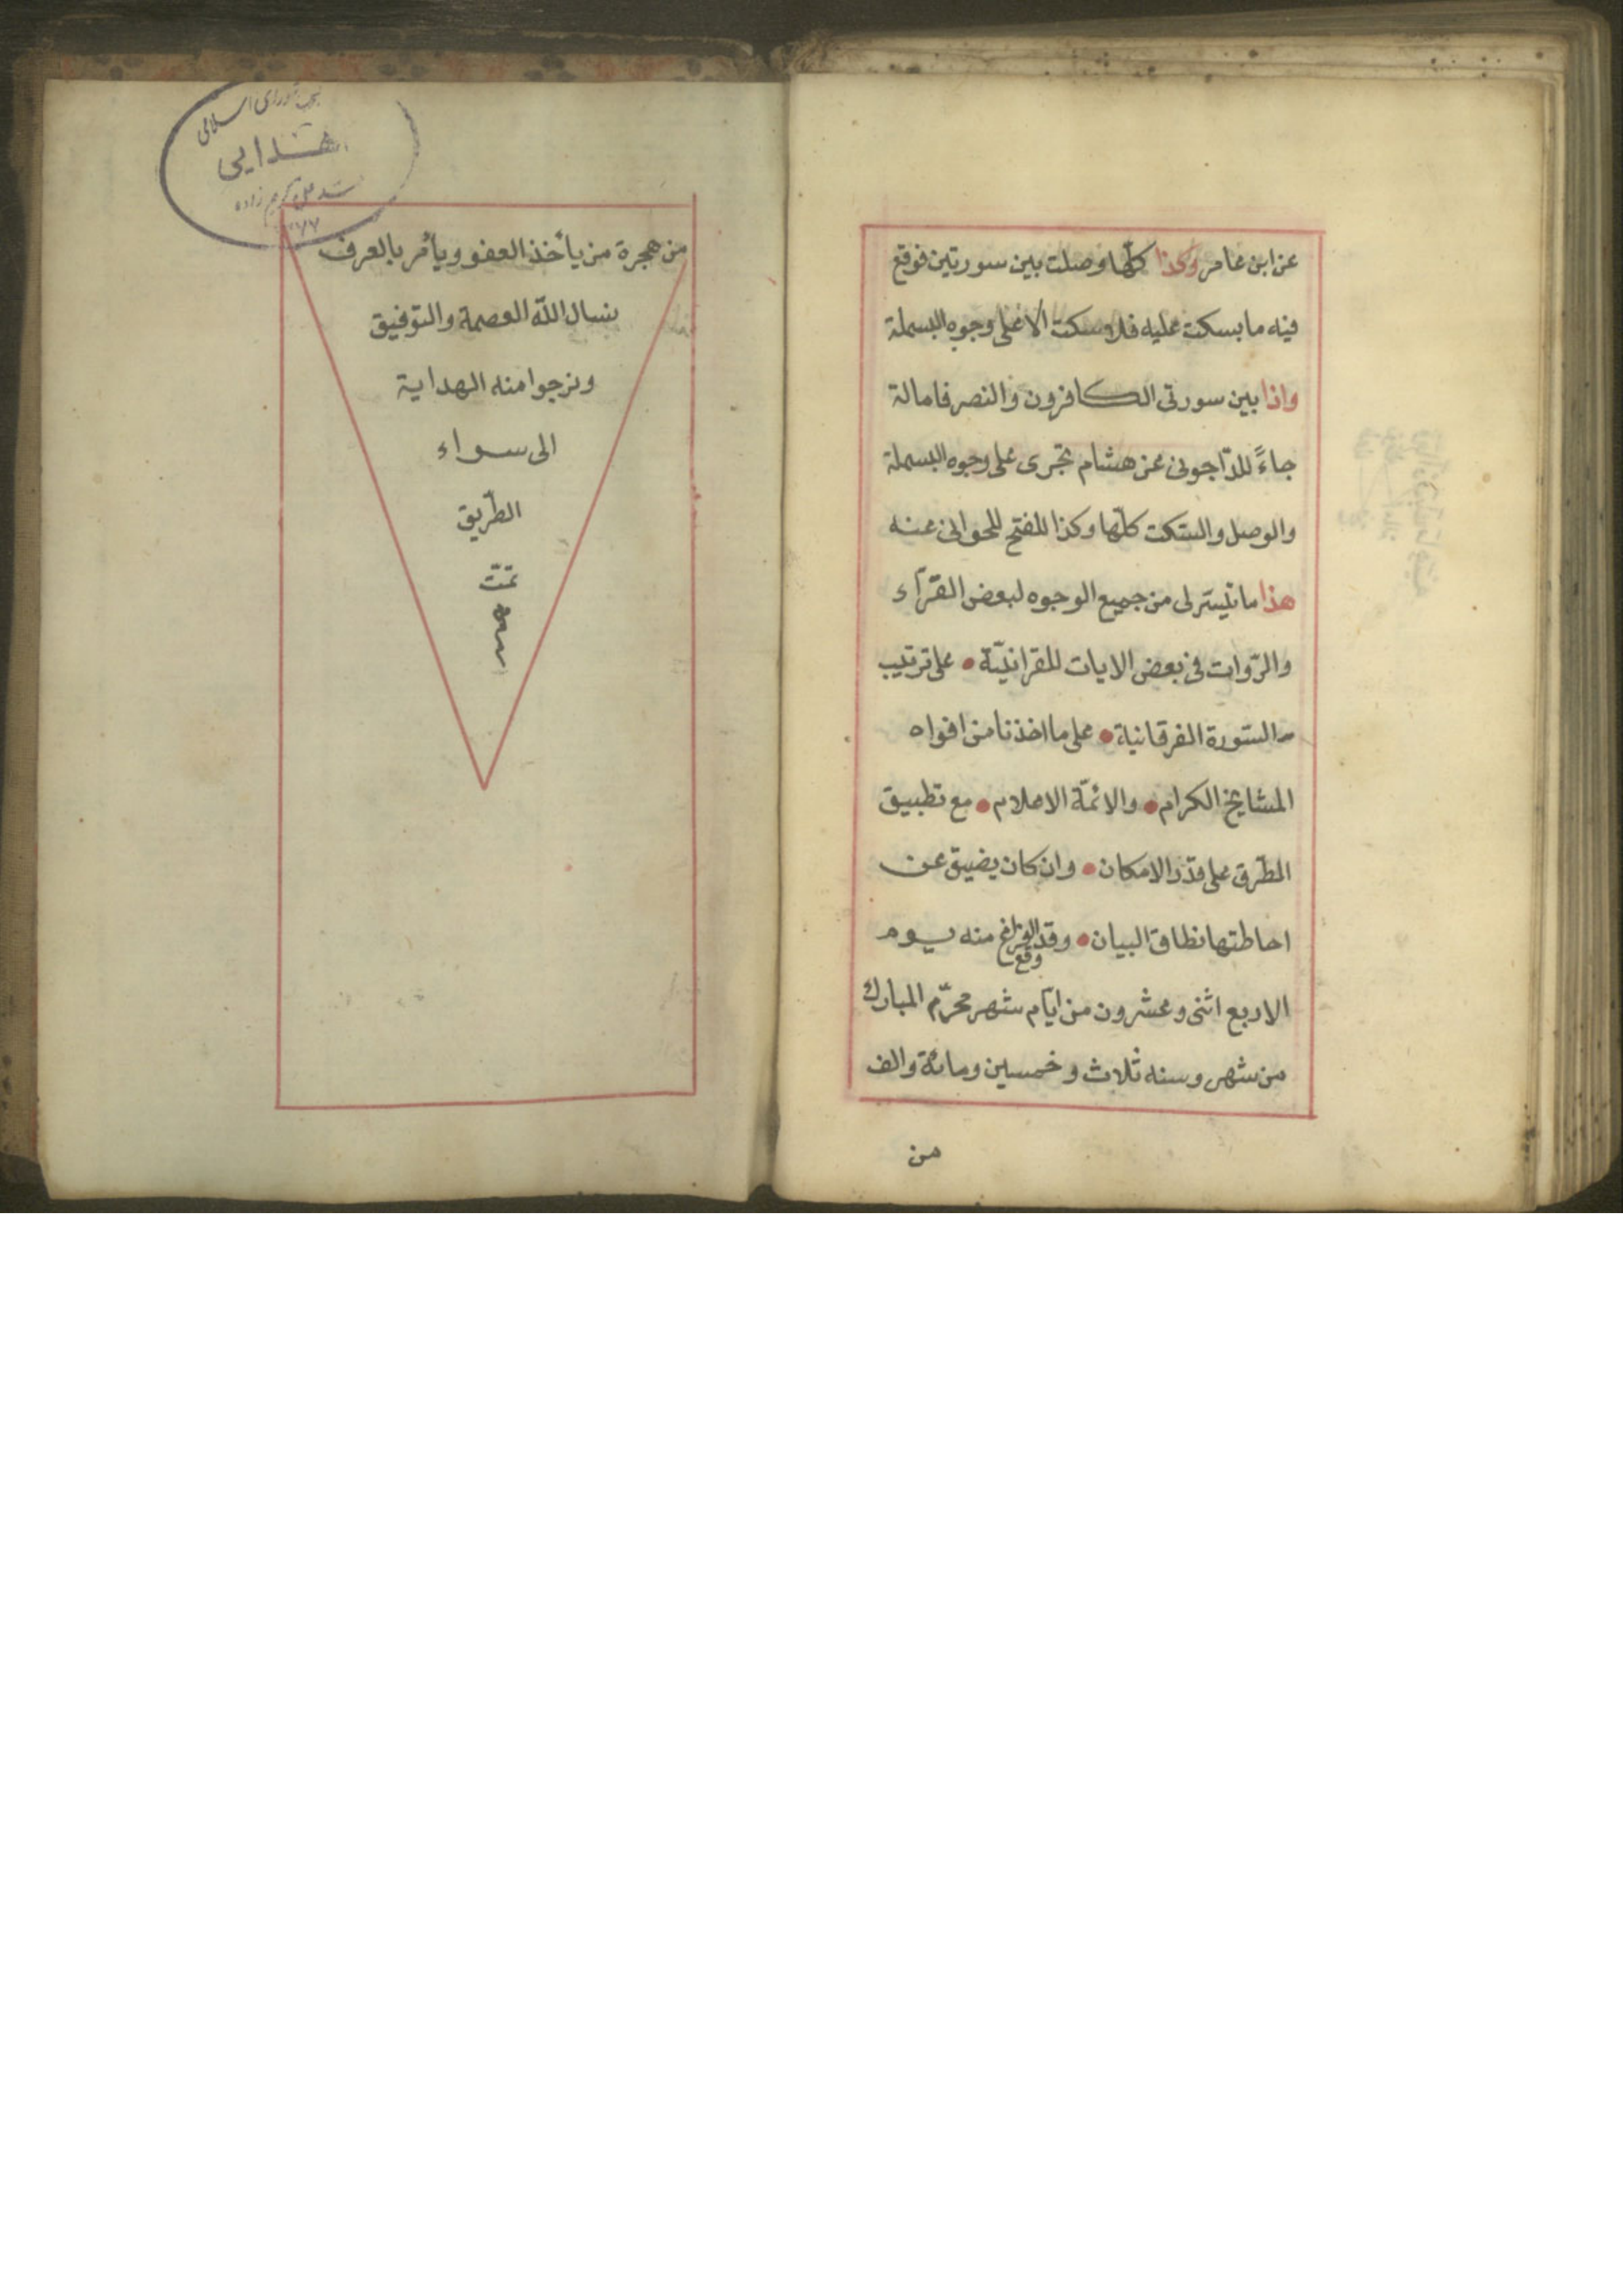 عن ابن عامر وكذا كلّها وصلت بين سورتين فوقع
فيه ما يسكت عليه فلا سكت الا على وجوه البسملة
واذا بين سورتى الكافرون والنصر فامالة
جاءَ للدّاجونى عن هشام تجرى على وجوه البسملة
والوصل والسّكت كلّها وكذا للفتح للحلوانى عنه
هذا ما تيسّر لى من جميع الوجوه لبعض القرّآء
والرّوات فى بعض الايات القرانيّة • على ترتيب
السّورة الفرقانية • على ما اخذنا من افواه
المشايخ الكرام • والائمّة الاعلام • مع تطبيق
الطّرق على قدر الامكان • وان كان يضيق عن
احاطتها نطاق البيان • وقد وقع الفراغ منه يوم
الاربع اثنى وعشرون من ايّام شهر محرّم المبارك
من شهر وسنه ثلاث وخمسين ومائة والف
من
شوراى اسلامى
اهدايى
۷۷
من هجرة من يأخذ العفو ويأمر بالعرف
نسال اللّه العصمة والتوفيق
ونرجوا منه الهداية
الى سواء
الطّريق
تمّت